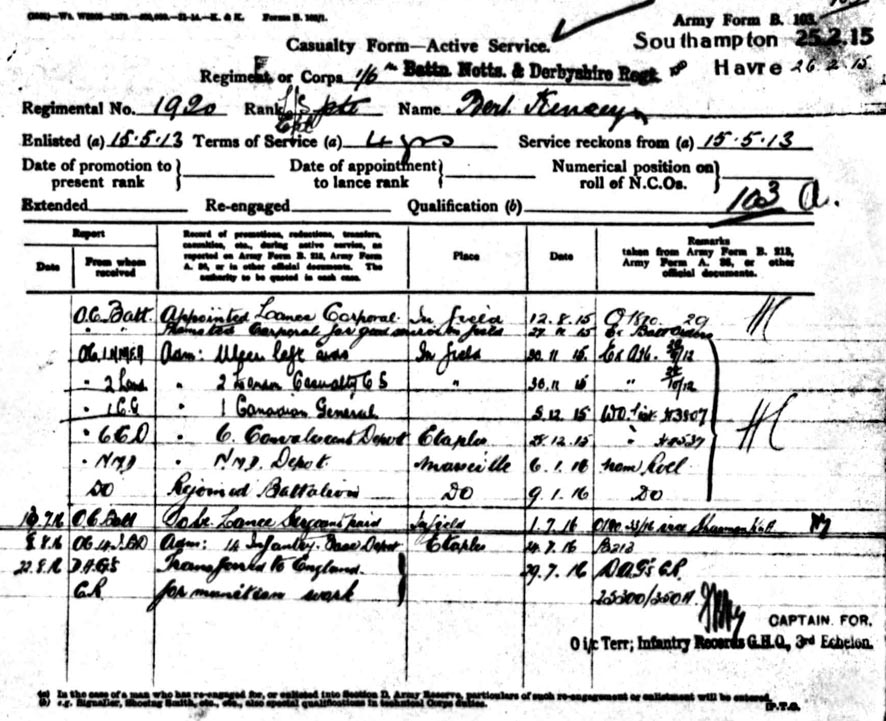 Forms B. 103/1.
Army Form B. 103.
Casualty Form—Active Service.
Southampton 25.2.15
Regiment or Corps 1/6 Battn. Notts. & Derbyshire Regt.
Havre 26.2.15
Regimental No. 1920 Rank L/S Cpl pte Name Bert
Enlisted (a) 15.5.13 Terms of Service (a) 4 yrs Service reckons from (a) 15.5.13
Date of promotion to present rank } Date of appointment to lance rank } Numerical position on roll of N.C.Os. }
Extended Re-engaged Qualification (b)
103 a.
Report
Date From whom received
Record of promotions, reductions, transfers, casualties, etc., during active service, as reported on Army Form B. 213, Army Form A. 36, or in other official documents. The authority to be quoted in each case.
Place
Date
Remarks taken from Army Form B. 213, Army Form A. 36, or other official documents.
O.C. Batt. Appointed Lance Corporal In field 12.8.15 29
" " Promoted Corporal for good in field 15
Adm: Ulcer left In field 30.11 15. 
" 2 Lond " 2 London Casualty C S " 30.11 15 "
" 1 C G " 1 Canadian General 3.12.15 
" C.C.D " C. Convalescent Depot Etaples 28.12.15 "
" N.M.D " N.M.D. Depot Marseille 6.1.16 Nom Roll
DO Rejoined Battalion DO 9.1.16 Do
.7.16 O.C. Batt To be Lance Sergeant paid Infield 1.7.16
8.8.16 OC 14 I.B.D Adm: 14 Infantry Base Depot Etaples 24.7.16 B213
22.8.16 D.A.G's Transferred to England. 29.7.16 D.A.G's C.R.
C.R for munition work 25300/350A
CAPTAIN. FOR.
O i/c Terr; Infantry Records G.H.Q., 3rd Echelon.
(a) In the case of a man who has re-engaged for, or enlisted into Section D. Army Reserve, particulars of such re-engagement or enlistment will be entered.
(b) e.g. Signaller, Shoeing Smith, etc., etc., also special qualifications in technical Corps duties.
[P.T.O.